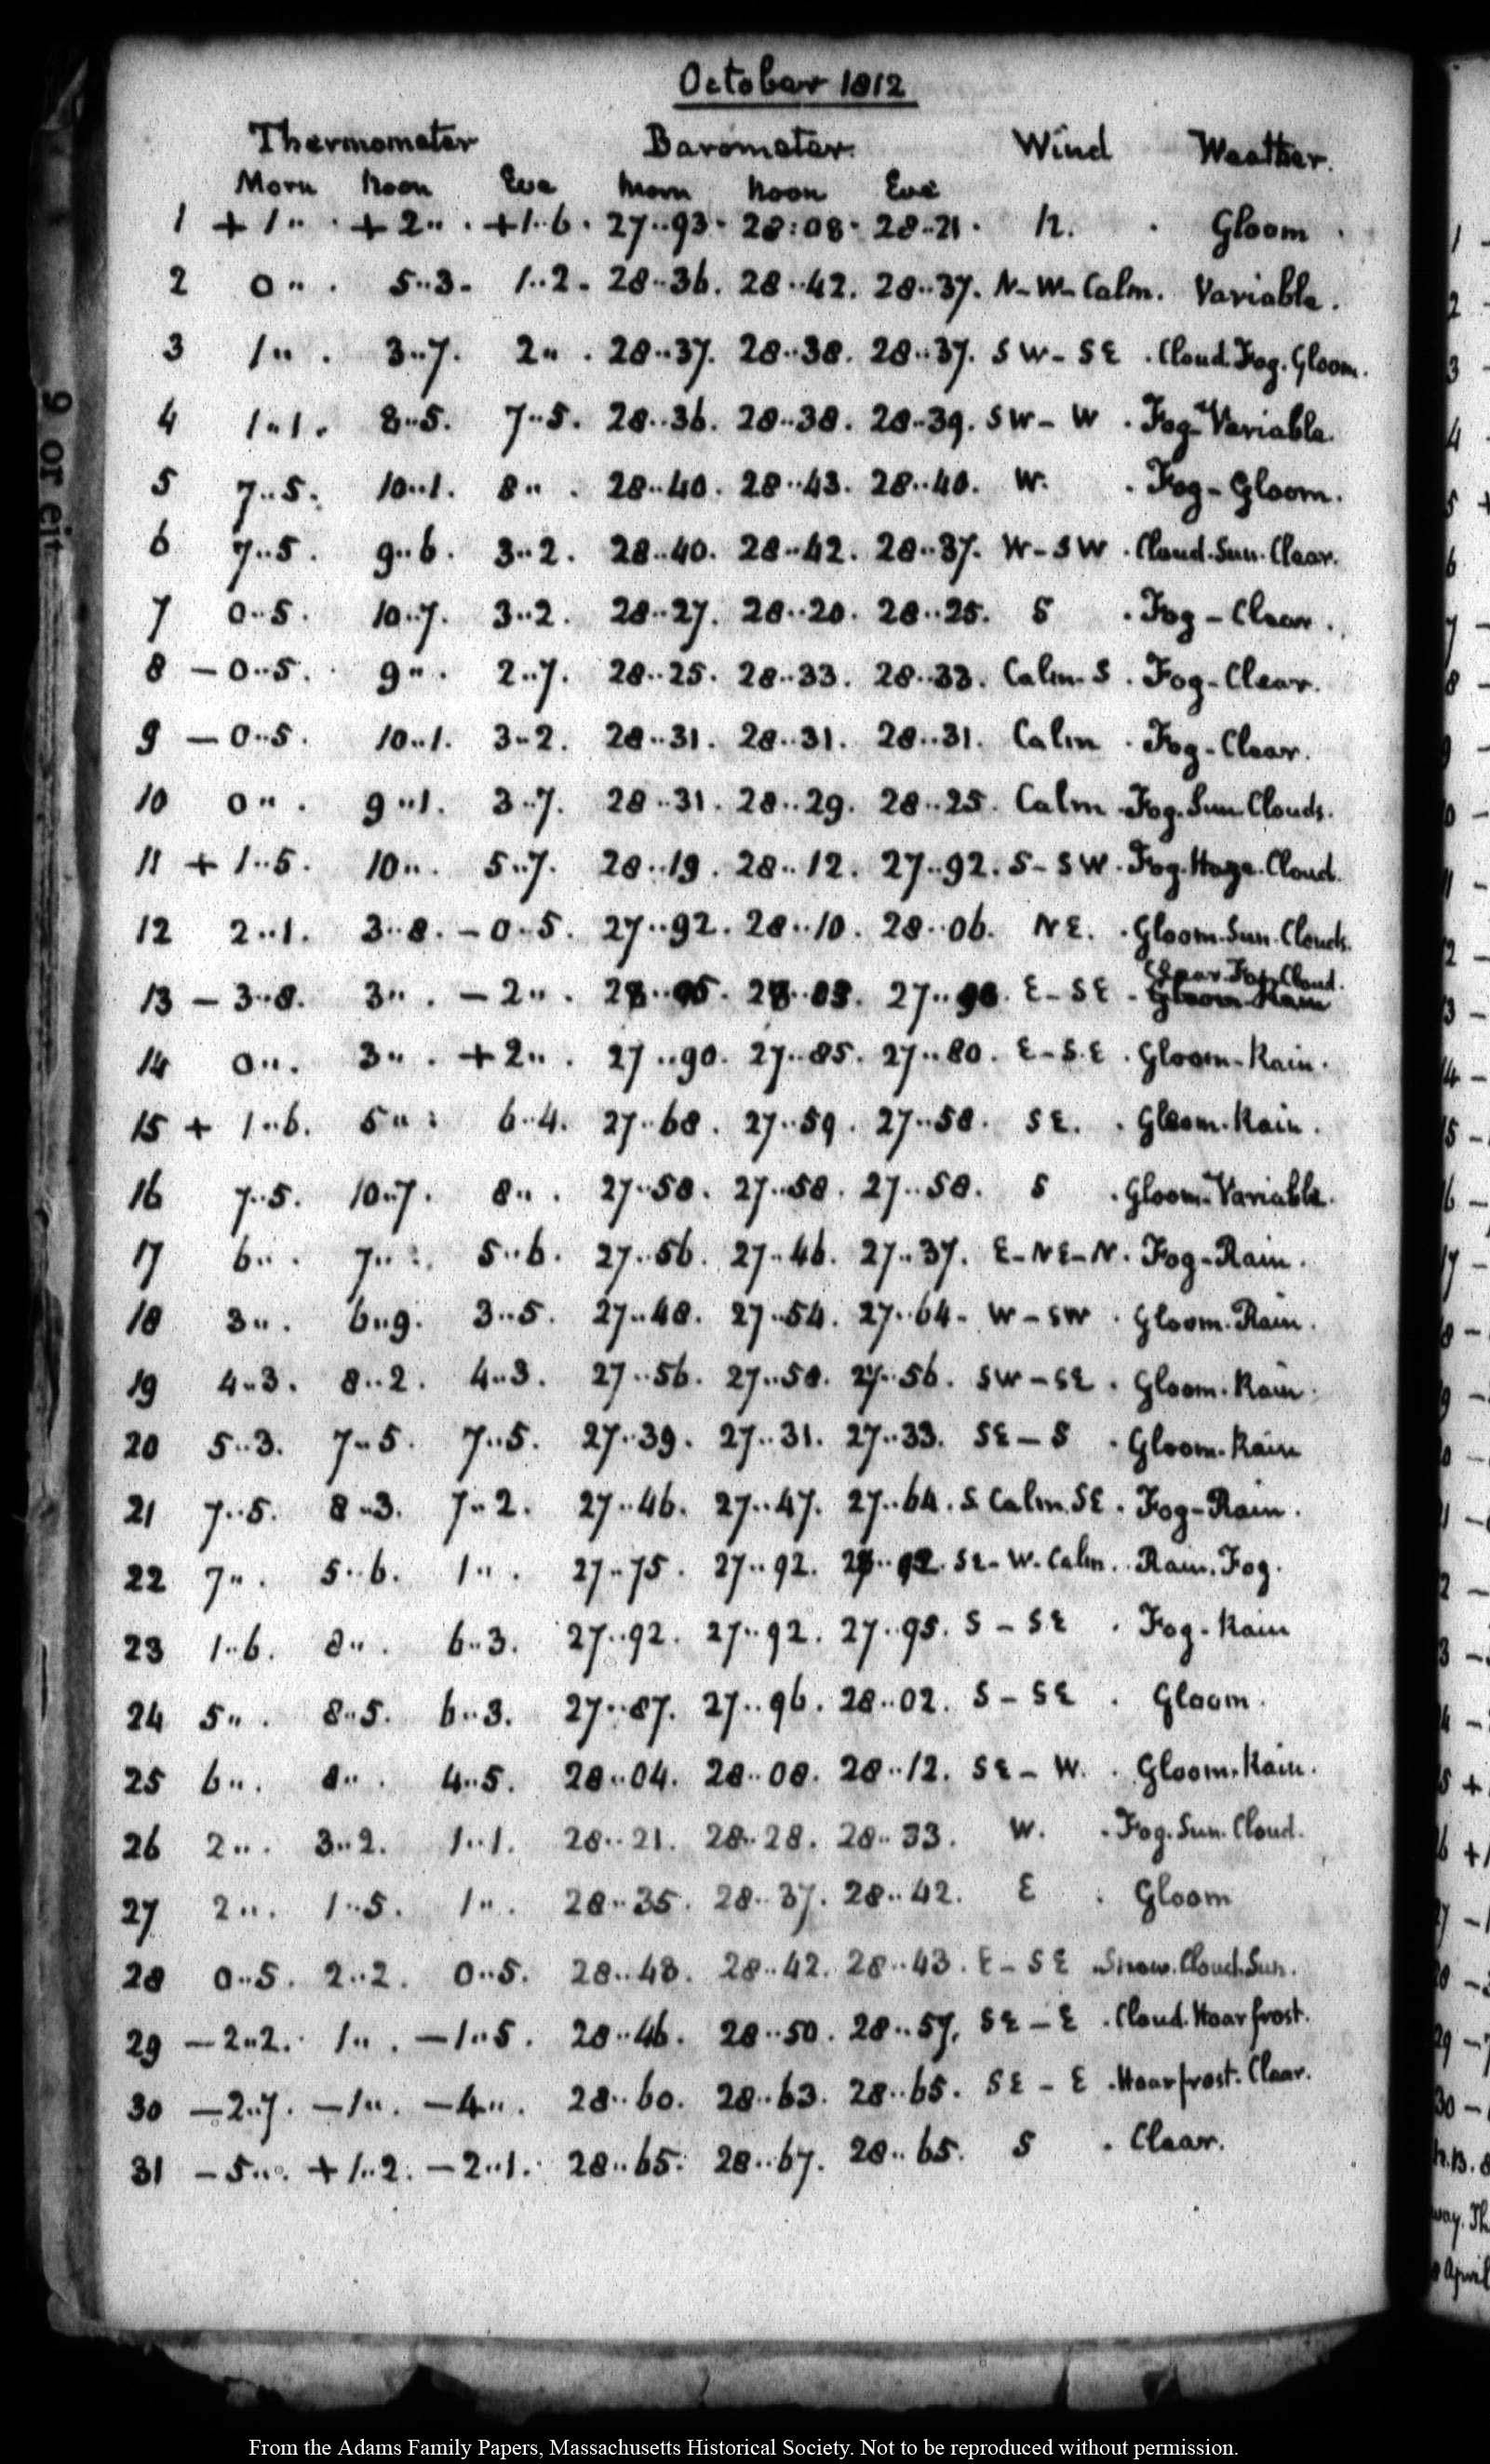 October 1812
Thermometer Barometer Wind Weather.
Morn Noon Eve Morn Noon Eve
1 + 1" . + 2" . +1..6. 27..93. 28:08. 28..21. N. . Gloom .
2 0" . 5..3. 1..2. 28..36. 28..42. 28..37. N-W-Calm. Variable.
3 1" . 3..7. 2" . 28..37. 28..38. 28..37. SW-SE . Cloud.Fog.Gloom.
4 1..1. 8..5. 7..5. 28..36. 28..38. 28..39. SW-W . Fog-Variable.
5 7..5. 10..1. 8" . 28..40. 28..43. 28..40. W. . Fog-Gloom.
6 7..5. 9..6. 3..2. 28..40. 28..42. 28..37. W-SW . Cloud.Sun.Clear.
7 0..5. 10..7. 3..2. 28..27. 28..20. 28..25. S . Fog-Clear.
8 -0..5. 9" . 2..7. 28..25. 28..33. 28..33. Calm-S . Fog-Clear.
9 -0..5. 10..1. 3..2. 28..31. 28..31. 28..31. Calm . Fog-Clear.
10 0" . 9..1. 3..7. 28..31. 28..29. 28..25. Calm . Fog.Sun.Clouds.
11 + 1..5. 10" . 5..7. 28..19. 28..12. 27..92. S-SW . Fog.Haze.Cloud.
12 2..1. 3..8. -0..5. 27..92. 28..10. 28..06. NE. . Gloom.Sun.Clouds.
Clear.Fog.Cloud.
13 -3..8. 3" . -2" . E-SE . Gloom-Rain
14 0" . 3" . +2" . 27..90. 27..85. 27..80. E-S.E . Gloom-Rain.
15 + 1..6. 5" . 6..4. 27..68. 27..59. 27..58. SE. . Gloom.Rain.
16 7..5. 10..7. 8" . 27..58. 27..58. 27..58. S . Gloom-Variable.
17 6" . 7" . 5..6. 27..56. 27..46. 27..37. E-NE-N. Fog-Rain.
18 3" . 6..9. 3..5. 27..48. 27..54. 27..64. W-SW . Gloom.Rain.
19 4..3. 8..2. 4..3. 27..56. 27..58. 27..56. SW-SE . Gloom.Rain.
20 5..3. 7..5. 7..5. 27..39. 27..31. 27..33. SE-S . Gloom.Rain
21 7..5. 8..3. 7..2. 27..46. 27..47. 27..64. S.Calm.SE . Fog-Rain.
22 7" . 5..6. 1" . 27..75. 27..92. 27..92. SE-W.Calm. . Rain.Fog.
23 1..6. 8" . 6..3. 27..92. 27..92. 27..95. S-SE . Fog-Rain
24 5" . 8..5. 6..3. 27..87. 27..96. 28..02. S-SE . Gloom.
25 6" . 8" . 4..5. 28..04. 28..08. 28..12. SE-W. . Gloom.Rain.
26 2" . 3..2. 1..1. 28..21. 28..28. 28..33. W. . Fog.Sun.Cloud.
27 2" . 1..5. 1" . 28..35. 28..37. 28..42. E . Gloom
28 0..5. 2..2. 0..5. 28..43. 28..42. 28..43. E-SE . Snow.Cloud.Sun.
29 -2..2. 1" . -1..5. 28..46. 28..50. 28..57. SE-E . Cloud.Hoar frost.
30 -2..7. -1" . -4" . 28..60. 28..63. 28..65. SE-E . Hoar frost.Clear.
31 -5" . +1..2. -2..1. 28..65. 28..67. 28..65. S . Clear.
From the Adams Family Papers, Massachusetts Historical Society. Not to be reproduced without permission.